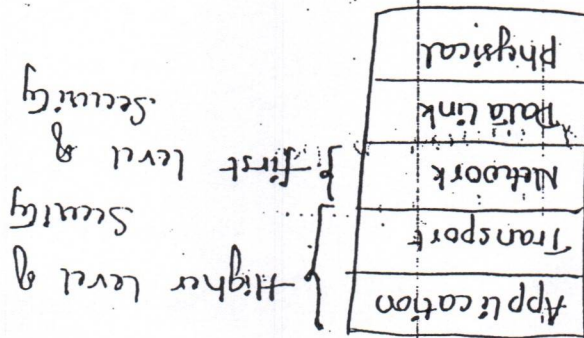 Application
Transport
Network
Data Link
Physical
Higher Level of
Security
first Level of
Security